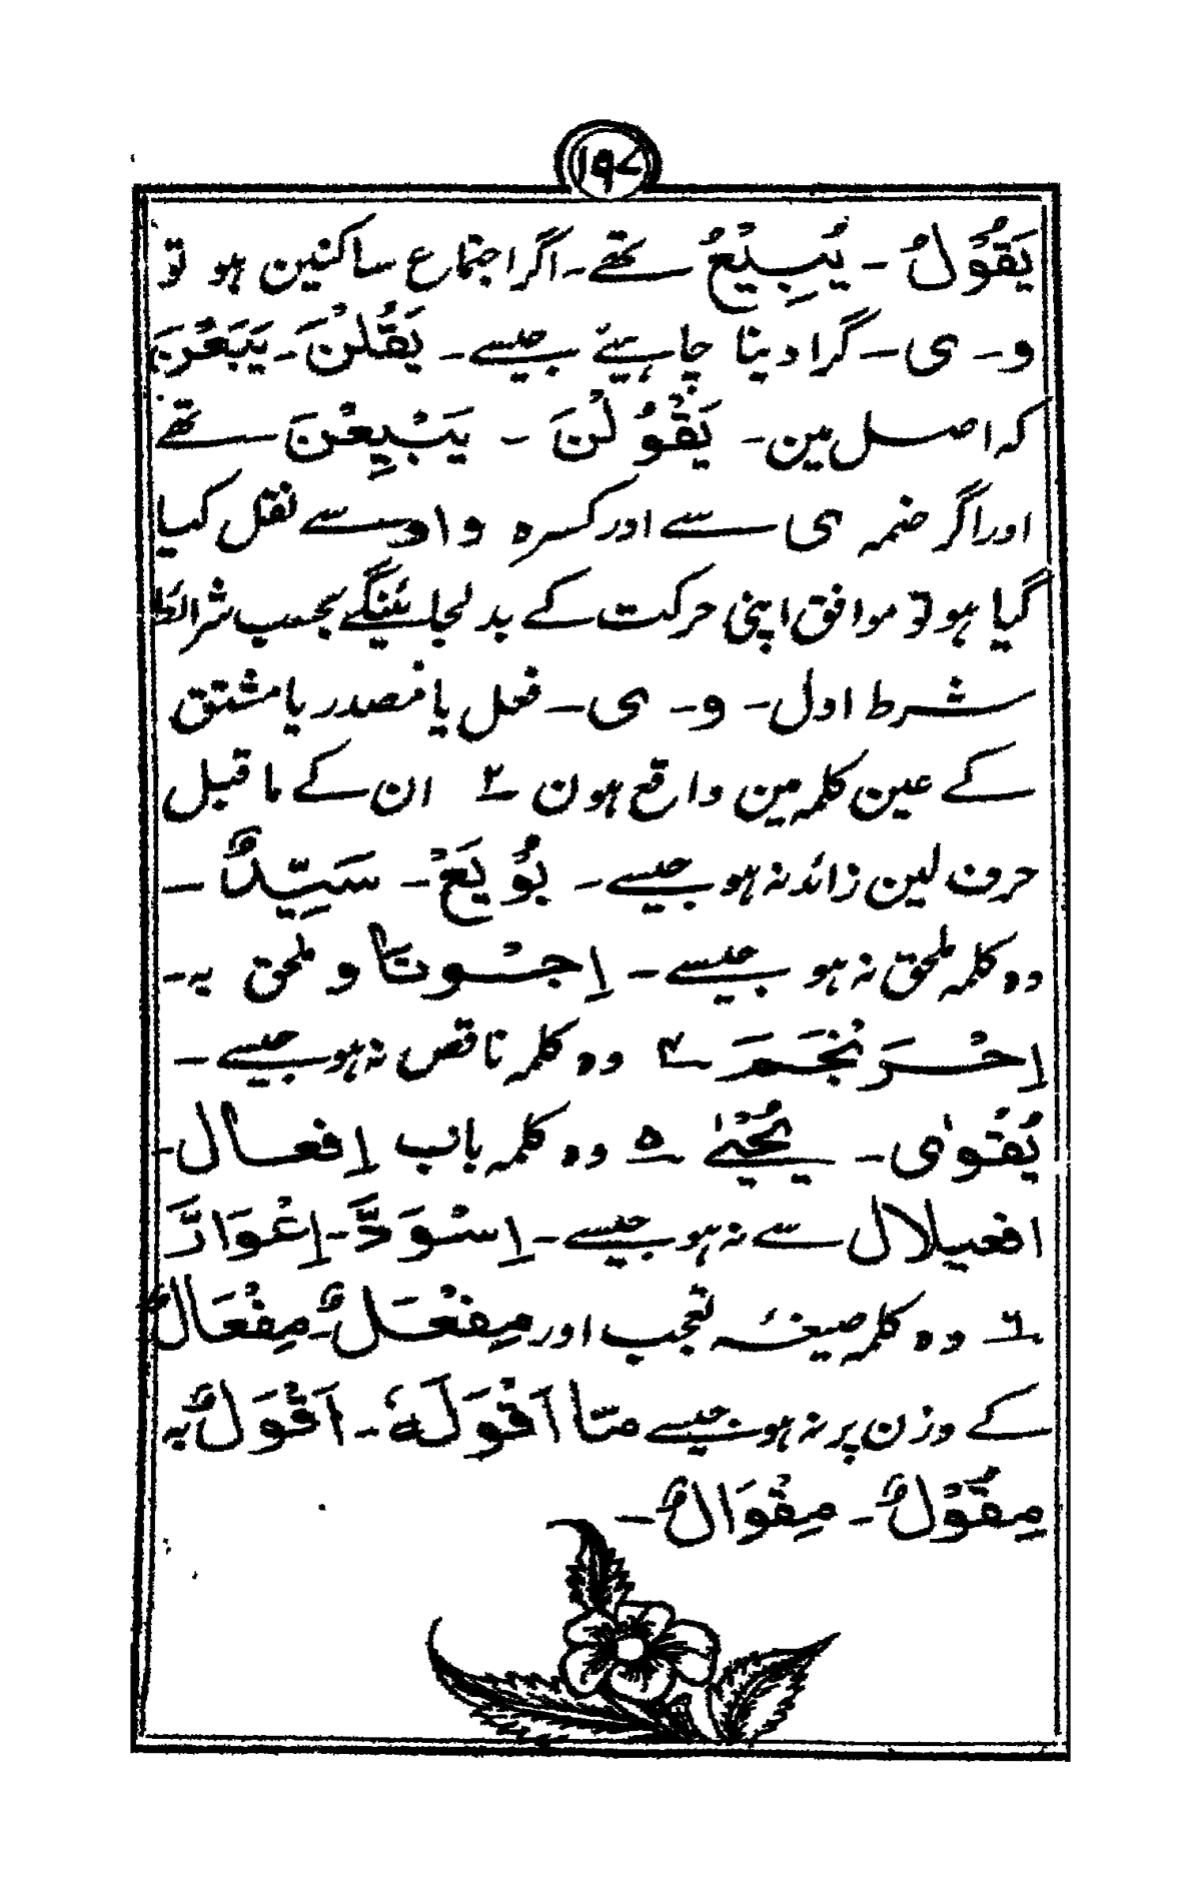 ۱۹۷
یَقْوُلُ ۔ یُبْیِعُ تھے ۔ اگر اجتماع ساکنین ہو تو
و ۔ ی ۔ گرا دینا چاہیئے جیسے ۔ یَقُلْنَ ۔ یَبِعْنَ
کہ اصل مین ۔ یَقْوُلْنَ ۔ یَبْیِعْنَ تھے
اور اگر ضمہ ی سے اور کسرہ واو سے نقل کیا
گیا ہو تو موافق اپنی حرکت کے بدلجائینگے بحسب شرائط
شرط اول ۔ و ۔ ی ۔ فعل یا مصدر یا مشتق
کے عین کلمہ مین واقع ہون ۲ ان کے ماقبل
حرف لین زائد نہ ہو جیسے ۔ بُوْیِعَ ۔ سَیِّدٌ ۔
وہ کلمہ ملحق نہ ہو جیسے ۔ اِجْوَنَا و ملحق بہ ۔
اِحْرَنْجَمَ ۴ وہ کلمہ ناقص نہ ہو جیسے ۔
یُقْوٰی ۔ یُحْیٰے ۵ وہ کلمہ باب اِفعال ۔
افعیلال سے نہ ہو جیسے ۔ اِسْوَدَّ ۔ اِعْوَادَّ
۶ وہ کلمہ صیغۂ تعجب اور مِفْعَلٌ ۔ مِفْعَالٌ
کے وزن پر نہ ہو جیسے مَا اَقْوَلَهٗ ۔ اَقْوَلُ بہ
مِقْوَلٌ ۔ مِقْوَالٌ ۔